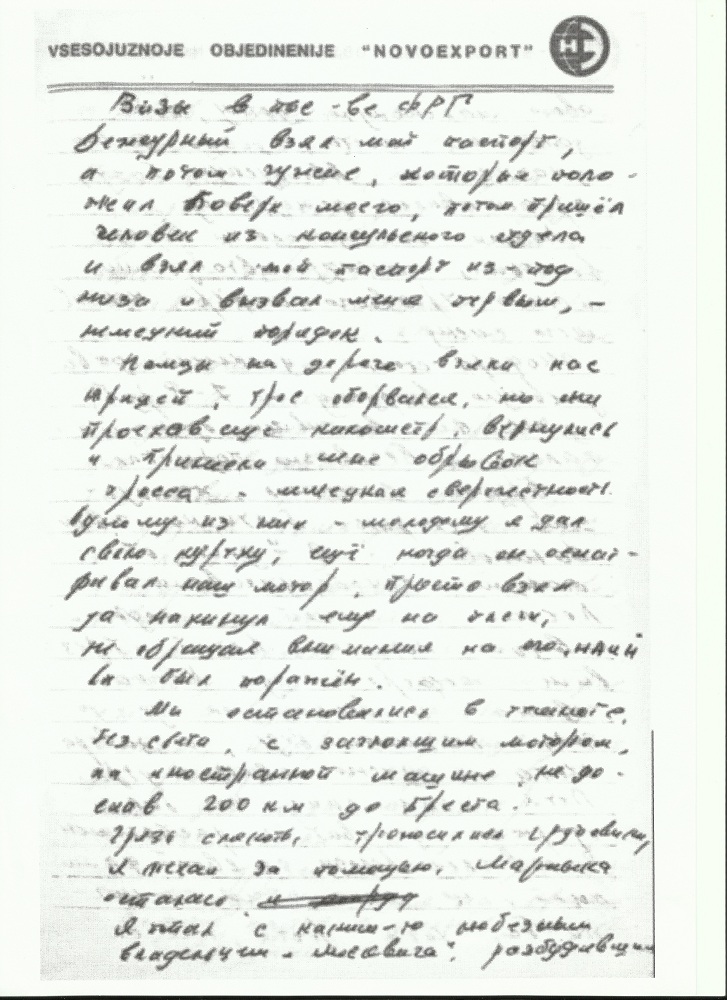 VSESOJUZNOJE OBJEDINENIJE "NOVOEXPORT"
Визы в пос-ве ФРГ
Дежурный взял мой паспорт,
а потом чужие, которые поло-
жил поверх моего, потом пришёл
человек из консульского отдела
и взял мой паспорт из-под
низа и вызвал меня первым, -
немецкий порядок.
Немцы на дороге взяли нас
трос оборвался, но они
проехав ещё километр, вернулись
и принесли мне обрывок
тросса - немецкая
Одному из них - молодому я дал
свою куртку, ещё когда он осмат-
ривал наш мотор, просто взял
да накинул ему на плечи,
не обращая внимания на
он был поражён.
Мы остановились в темноте,
без света, с заглохшим мотором,
на иностранной машине, не до-
ехав 200 км до Бреста.
Грязь слякоть, проносились грузовики,
Я уехал за помощью, Маринка
осталась
Я ехал с каким-то любезным
владельцем "Москвича", разбудившим